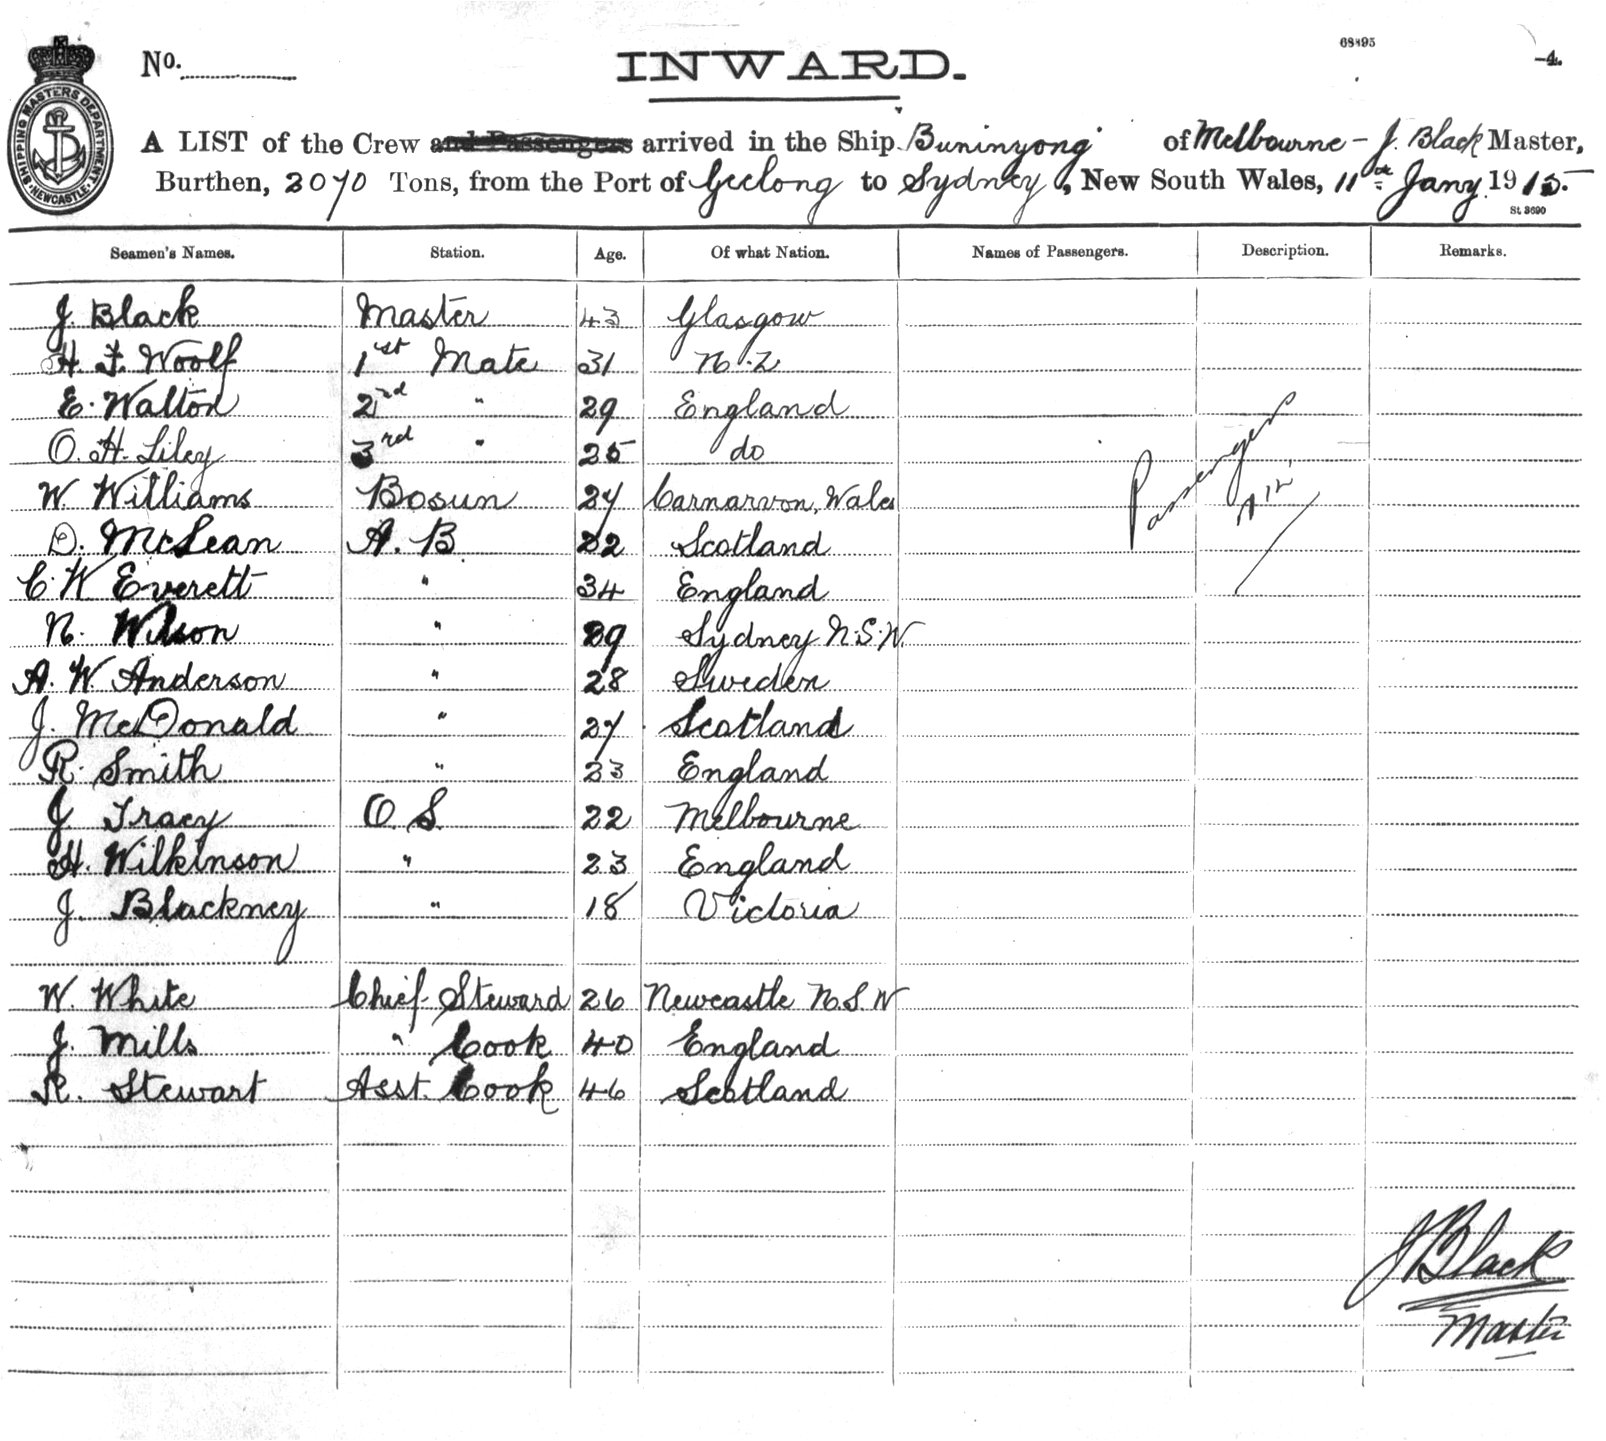 No.
INWARD.
68495
-4.
SHIPPING MASTERS DEPARTMENT
NEWCASTLE
A LIST of the Crew and Passengers arrived in the Ship Buninyong of Melbourne - J. Black Master,
Burthen, 2070 Tons, from the Port of Geelong to Sydney, New South Wales, 11th Jany. 1915.
St. 3690
Seamen's Names. Station. Age. Of what Nation. Names of Passengers. Description. Remarks.
J. Black Master 43 Glasgow
H. F. Woolf 1st Mate 31 N.Z
E. Walton 2nd " 29 England
O. H. Liley 3rd " 25 do
W. Williams Bosun 27 Carnarvon, Wales
D. McLean A. B 22 Scotland
C. W Everett " 34 England
N. Wilson " 29 Sydney N.S.W.
A. W Anderson " 28 Sweden
J. McDonald " 27 Scotland
R. Smith " 23 England
J Tracy O. S. 22 Melbourne
H. Wilkinson " 23 England
J. Blackney " 18 Victoria
Passengers
Nil
W. White Chief Steward 26 Newcastle N.S.W
J. Mills " Cook 40 England
R. Stewart Asst. Cook 46 Scotland
J Black
Master